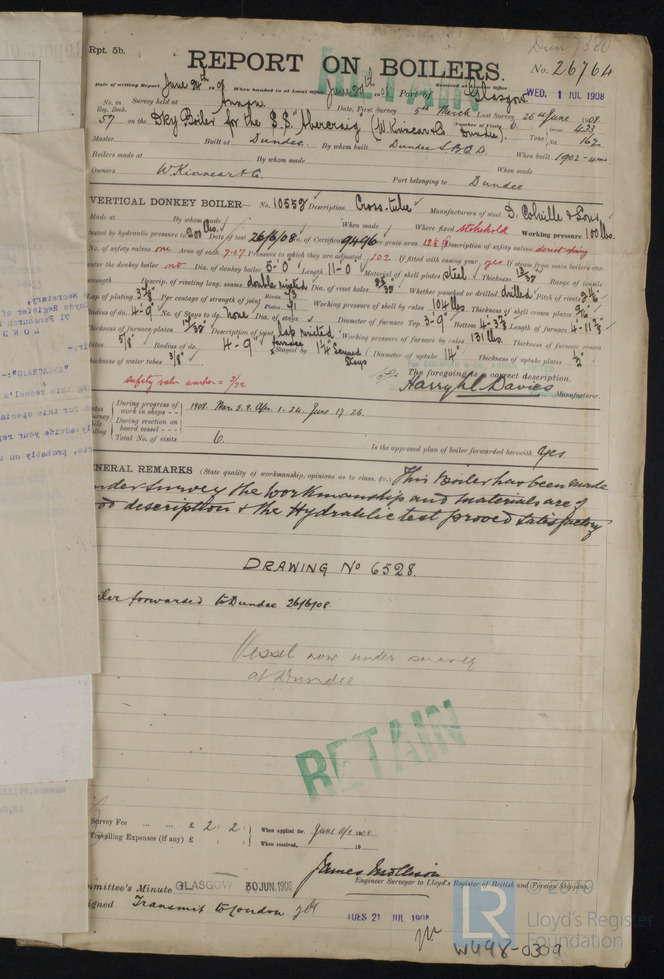 Rpt. 5b.
REPORT ON BOILERS.
No. 26764
Date of writing Report June 24th 08 When handed in at Local Office June 24th 08 Port of Glasgow
WED. 1 JUL 1908
No. in Survey held at Annan Date, First Survey 5th March Last Survey 26th June 1908
Reg. Book.
57 on the Dky Boiler for the S.S. Abercraig (W. Kinnear & Co. Dundee) Gross 423
Tons Net 162
Master Built at Dundee By whom built Dundee S.B. Co When built 1902
Boilers made at By whom made When made
Owners W. Kinnear & Co. Port belonging to Dundee
VERTICAL DONKEY BOILER— No. 10552 Description Cross-tube Manufacturers of steel D. Colville & Sons
Made at By whom made When made Where fixed stokehold Working pressure 100 lbs.
tested by hydraulic pressure to 200 lbs. Date of test 26/6/08 No. of Certificate 9496 Fire grate area Description of safety valves direct spring
No. of safety valves one Area of each 7.07 Pressure to which they are adjusted 102 If fitted with easing gear yes If steam from main boilers can
enter the donkey boiler no Dia. of donkey boiler 5'-0" Length 11-0 Material of shell plates steel Thickness Range of tensile
strength Descrip. of riveting long. seams double riveted Dia. of rivet holes Whether punched or drilled drilled Pitch of rivets
Lap of plating Per centage of strength of joint Rivets Plates 71 Working pressure of shell by rules 104 lbs Thickness of shell crown plates 9/16"
Radius of do. 4-9" No. of Stays to do. none Dia. of stays Diameter of furnace Top 3-9" Bottom Length of furnace
Thickness of furnace plates Description of joint lap riveted Working pressure of furnace by rules 131 lbs. Thickness of furnace crown
plates 5/8" Radius of do. 4-9" Stayed by Diameter of uptake 14" Thickness of uptake plates 1/2"
Thickness of water tubes 3/8"
The foregoing is a correct description,
Harry H. Davies Manufacturer.
During progress of work in shops 1908. Mar. 5. 9. Apr. 1. 24. June 17. 26.
During erection on board vessel
Total No. of visits 6.
Is the approved plan of boiler forwarded herewith Yes
GENERAL REMARKS (State quality of workmanship, opinions as to class, &c.) This Boiler has been made
under survey the workmanship and materials are of
good description & the Hydraulic test proved satisfactory
DRAWING No 6528.
forwarded to Dundee 26/6/08.
Vessel now under survey
at Dundee
RETAIN
Survey Fee £ 2 : 2 : When applied for, June 1908
Travelling Expenses (if any) £ When received, 19
Engineer Surveyor to Lloyd's Register of British and Foreign Shipping.
Committee's Minute GLASGOW 30 JUN. 1908
Assigned Transmit to London
TUES 21 JUL 1908
© 2019
LR
Lloyd's Register
Foundation
W498-0309